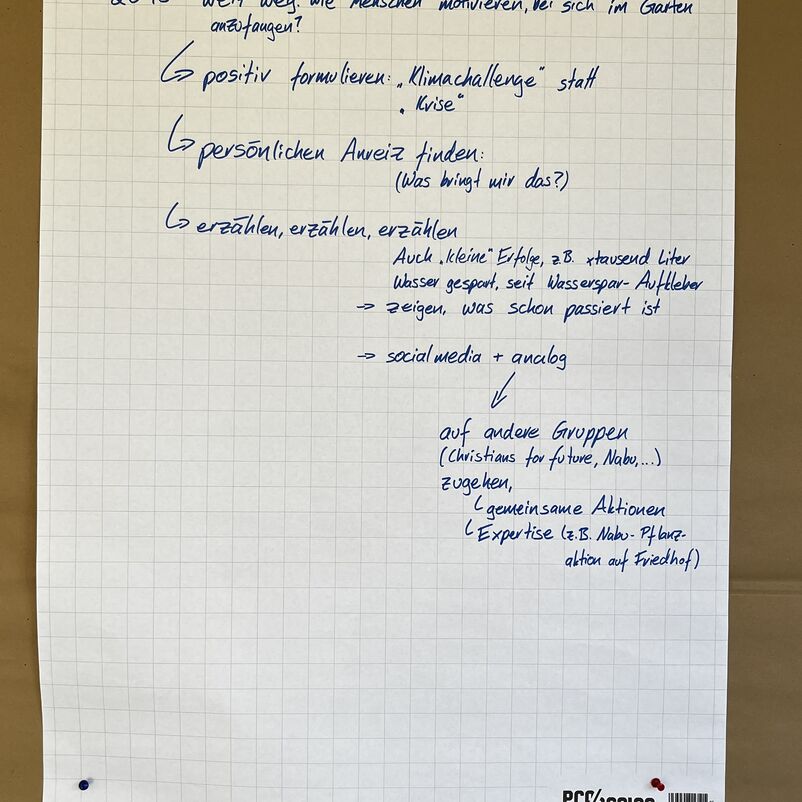 weit weg. Wie Menschen motivieren, bei sich im Garten
anzufangen?
↳ positiv formulieren: „Klimachallenge" statt
„Krise"
↳ persönlichen Anreiz finden:
(Was bringt mir das?)
↳ erzählen, erzählen, erzählen
Auch „kleine" Erfolge, z.B. xtausend Liter
Wasser gespart, seit Wasserspar-Aufkleber
→ zeigen, was schon passiert ist
→ socialmedia + analog
auf andere Gruppen
(Christians for future, Nabu,...)
zugehen,
↳ gemeinsame Aktionen
↳ Expertise (z.B. Nabu-Pflanz-
aktion auf Friedhof)